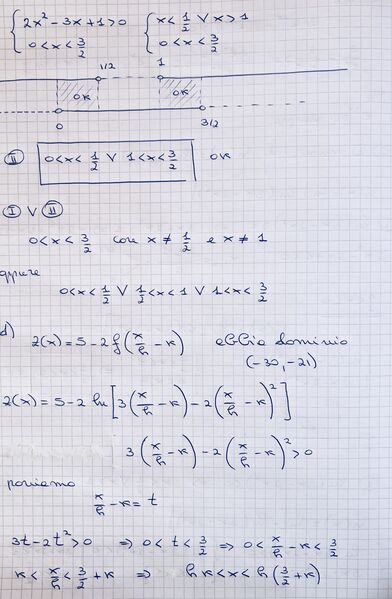 { 2x² - 3x + 1 > 0 { x < 1/2 ∨ x > 1
{ 0 < x < 3/2 { 0 < x < 3/2
1/2 1
OK OK
0 3/2
II 0 < x < 1/2 ∨ 1 < x < 3/2 OK
I ∨ II
0 < x < 3/2 con x ≠ 1/2 e x ≠ 1
0 < x < 1/2 ∨ 1/2 < x < 1 ∨ 1 < x < 3/2
d) 2(x) = 5 - 2f(x/h - k) abbia dominio
(-30, -21)
2(x) = 5 - 2 ln[3(x/h - k) - 2(x/h - k)²]
3(x/h - k) - 2(x/h - k)² > 0
poniamo
x/h - k = t
3t - 2t² > 0 ⇒ 0 < t < 3/2 ⇒ 0 < x/h - k < 3/2
k < x/h < 3/2 + k ⇒ hk < x < h(3/2 + k)